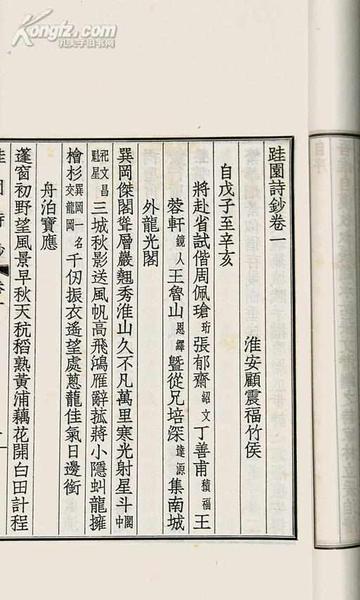 跬園詩鈔卷一
淮安顧震福竹侯
自戊子至辛亥
將赴省試偕周佩瑲珩張郁齋紹文丁善甫積福王
蓉軒鏡人王魯山恩繹曁從兄培深達源集南城
外龍光閣
巽岡傑閣聳層巖翹秀淮山久不凡萬里寒光射星斗閣中
祀文昌魁星三城秋影送風帆高飛鴻雁辭菰蔣小隱虯龍擁
檜杉巽岡一名交龍岡千仞振衣遙望處蔥蘢佳氣日邊銜
舟泊寶應
蓬窗初野望風景早秋天秔稻熟黃浦藕花開白田計程
跬園詩鈔 卷一